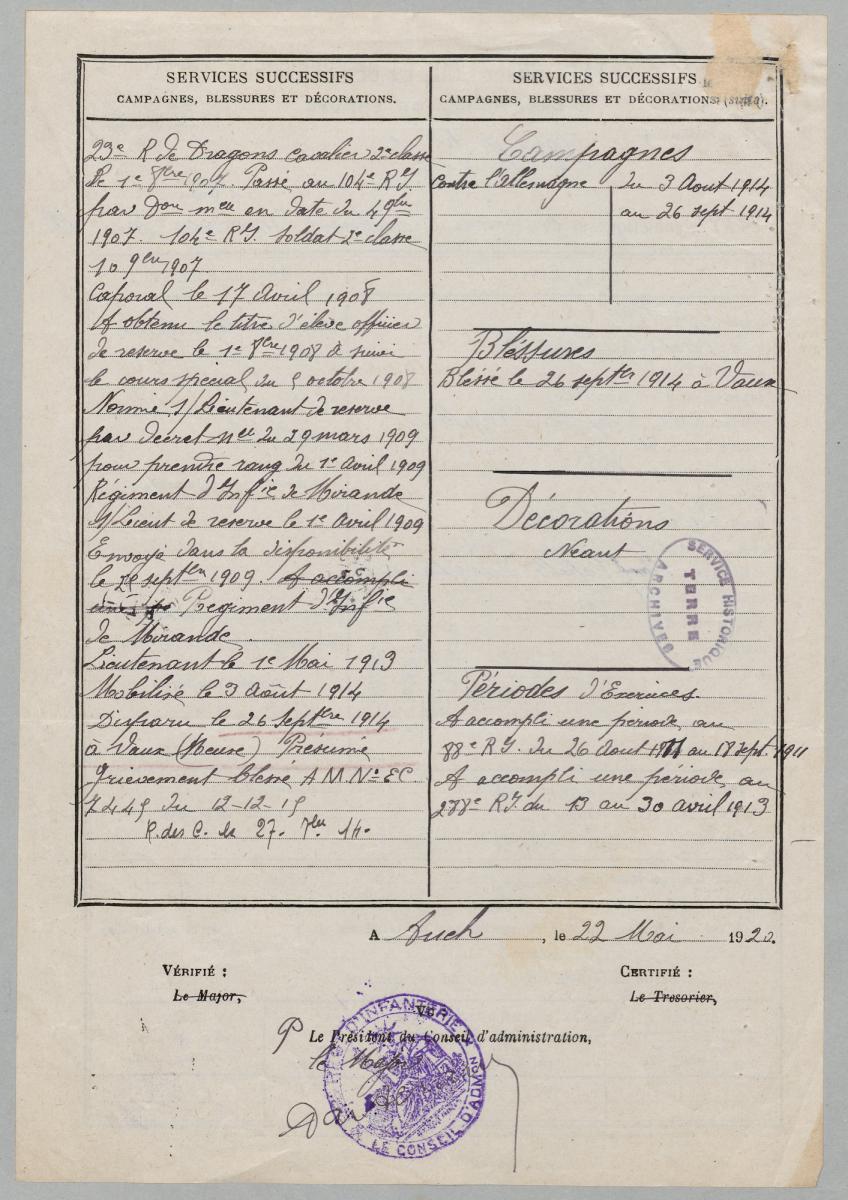 SERVICES SUCCESSIFS
CAMPAGNES, BLESSURES ET DÉCORATIONS.
23e R de Dragons cavalier 2e classe
le 1e 8bre 1907. Passé au 104e RI
par Don meu en date du 4 9bre
1907. 104e RI. soldat 2e classe
10 9bre 1907
Caporal le 17 Avril 1908
A obtenu le titre d'élève officier
de reserve le 1e 8bre 1908 a suivi
le cours special du 5 octobre 1908
Nommé S/Lieutenant de reserve
par décret du 29 mars 1909
pour prendre rang du 1e Avril 1909
Régiment d'Infie de Mirande
S/Lieut de reserve le 1e Avril 1909
Envoyé dans la disponibilité
le septbre 1909. A accompli
une Regiment d'Infie
de Mirande.
Lieutenant le 1e Mai 1913
Mobilisé le 3 Août 1914
Disparu le 26 Septbre 1914
à Vaux (Meuse) Présumé
grievement blessé A M No EC.
7449 du 12-12-15
R. des C. le 27. 7bre 14.
SERVICES SUCCESSIFS
CAMPAGNES, BLESSURES ET DÉCORATIONS. (suite).
Campagnes
Contre l'Allemagne du 3 Aout 1914
au 26 sept 1914
Bléssures
Bléssé le 26 septbre 1914 à Vaux
Décorations
Néant
SERVICE HISTORIQUE
TERRE
ARCHIVES
Périodes d'Exercices.
A accompli une période au
88e RI. du 26 Aout 1911 au 17 sept. 1911
A accompli une période au
288e RI du 13 au 30 avril 1913
A Auch, le 22 Mai 1920.
VÉRIFIÉ :
Le Major,
CERTIFIÉ :
Le Tresorier,
VU
P Le Président du Conseil d'administration,
le Major
D'INFANTERIE
LE CONSEIL D'ADMON